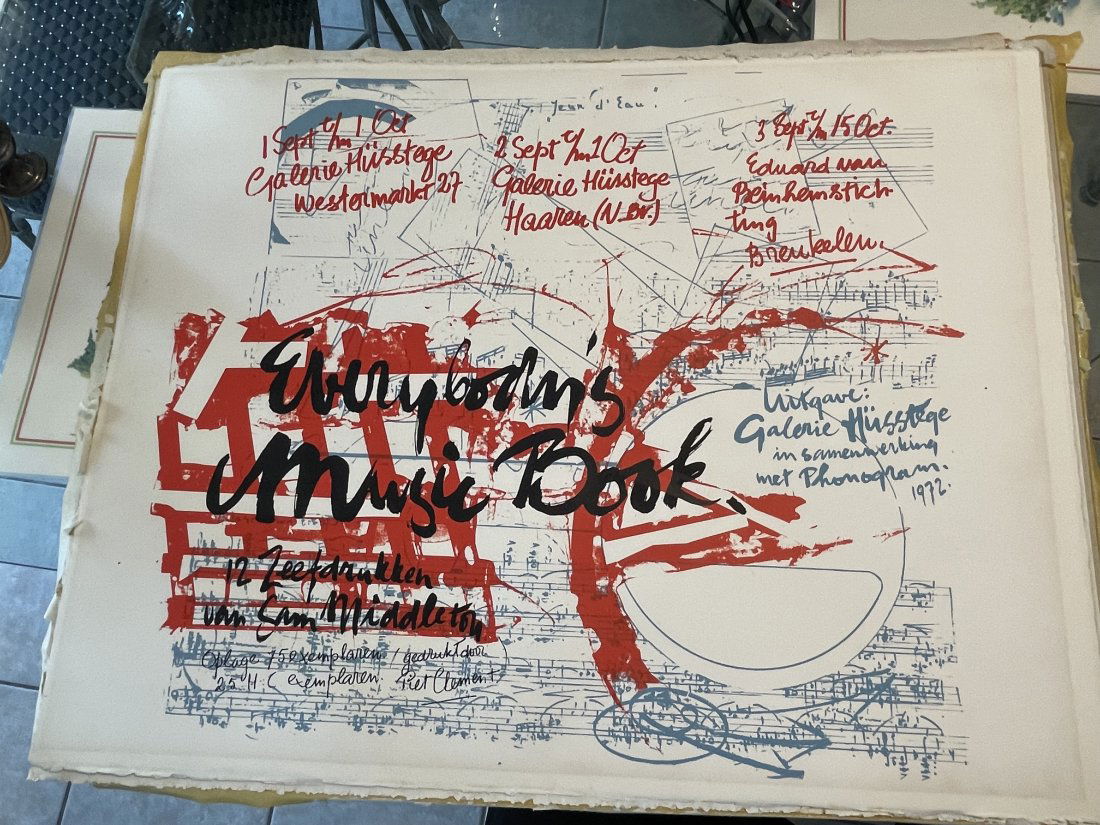 Jeux d'Eau.
1 Sept t/m 1 Oct
Galerie Hüsstege
Westermarkt 27
2 Sept t/m 1 Oct
Galerie Hüsstege
Haaren (N.Br.)
3 Sept t/m 15 Oct.
Eduard van
Beinhemstich
ting
Breukelen.
Everybody's
Music Book.
Uitgave:
Galerie Hüsstege
in samenwerking
met Phonogram.
1972.
12 Zeefdrukken
van Sam Middleton
Oplage 75 exemplaren / gedrukt door
25 H.C exemplaren Piet Clement